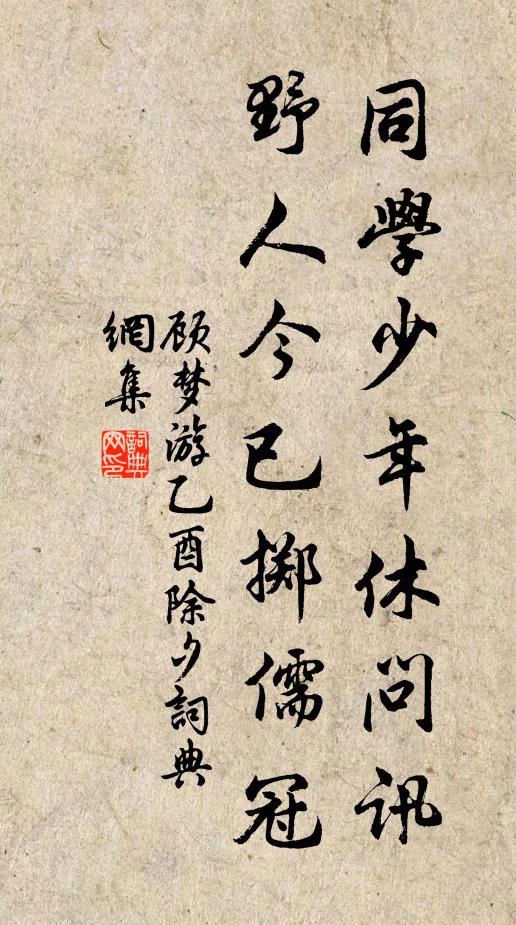 同學少年休问讯
野人今已掷儒冠
顾梦游乙酉除夕詞典
網集
詞典網印